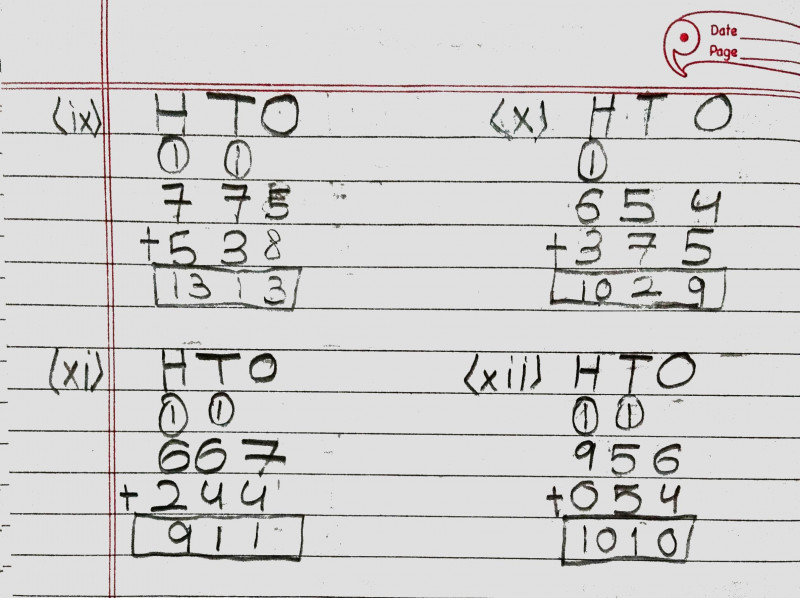 Date
Page
(ix) H T O
① ①
7 7 5
+ 5 3 8
13 1 3
(x) H T O
①
6 5 4
+ 3 7 5
10 2 9
(xi) H T O
① ①
6 6 7
+ 2 4 4
9 1 1
(xii) H T O
① ①
9 5 6
+ 0 5 4
10 1 0